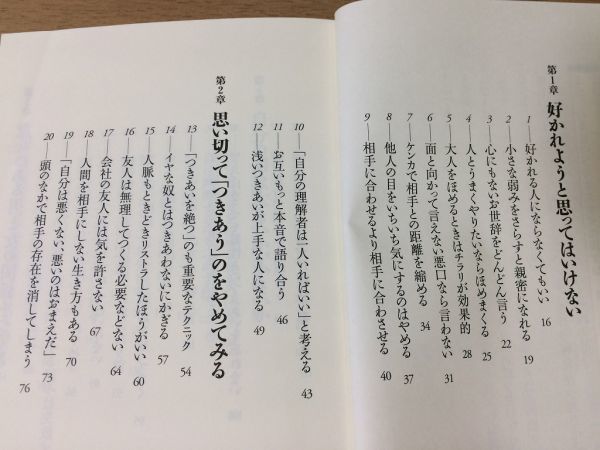 第1章 好かれようと思ってはいけない
1──好かれる人にならなくてもいい 16
2──小さな弱みをさらすと親密になれる 19
3──心にもないお世辞をどんどん言う 22
4──人とうまくやりたいならほめまくる 25
5──大人をほめるときはチラリが効果的 28
6──面と向かって言えない悪口なら言わない 31
7──ケンカで相手との距離を縮める 34
8──他人の目をいちいち気にするのはやめる 37
9──相手に合わせるより相手に合わさせる 40
10──「自分の理解者は一人いればいい」と考える 43
11──お互いもっと本音で語り合う 46
12──浅いつきあいが上手な人になる 49
第2章 思い切って「つきあう」のをやめてみる
13──「つきあいを絶つ」のも重要なテクニック 54
14──イヤな奴とはつきあわないにかぎる 57
15──人脈もときどきリストラしたほうがいい 60
16──友人は無理してつくる必要などない 64
17──会社の友人には気を許さない 67
18──人間を相手にしない生き方もある 70
19──「自分は悪くない、悪いのはおまえだ」 73
20──頭のなかで相手の存在を消してしまう 76